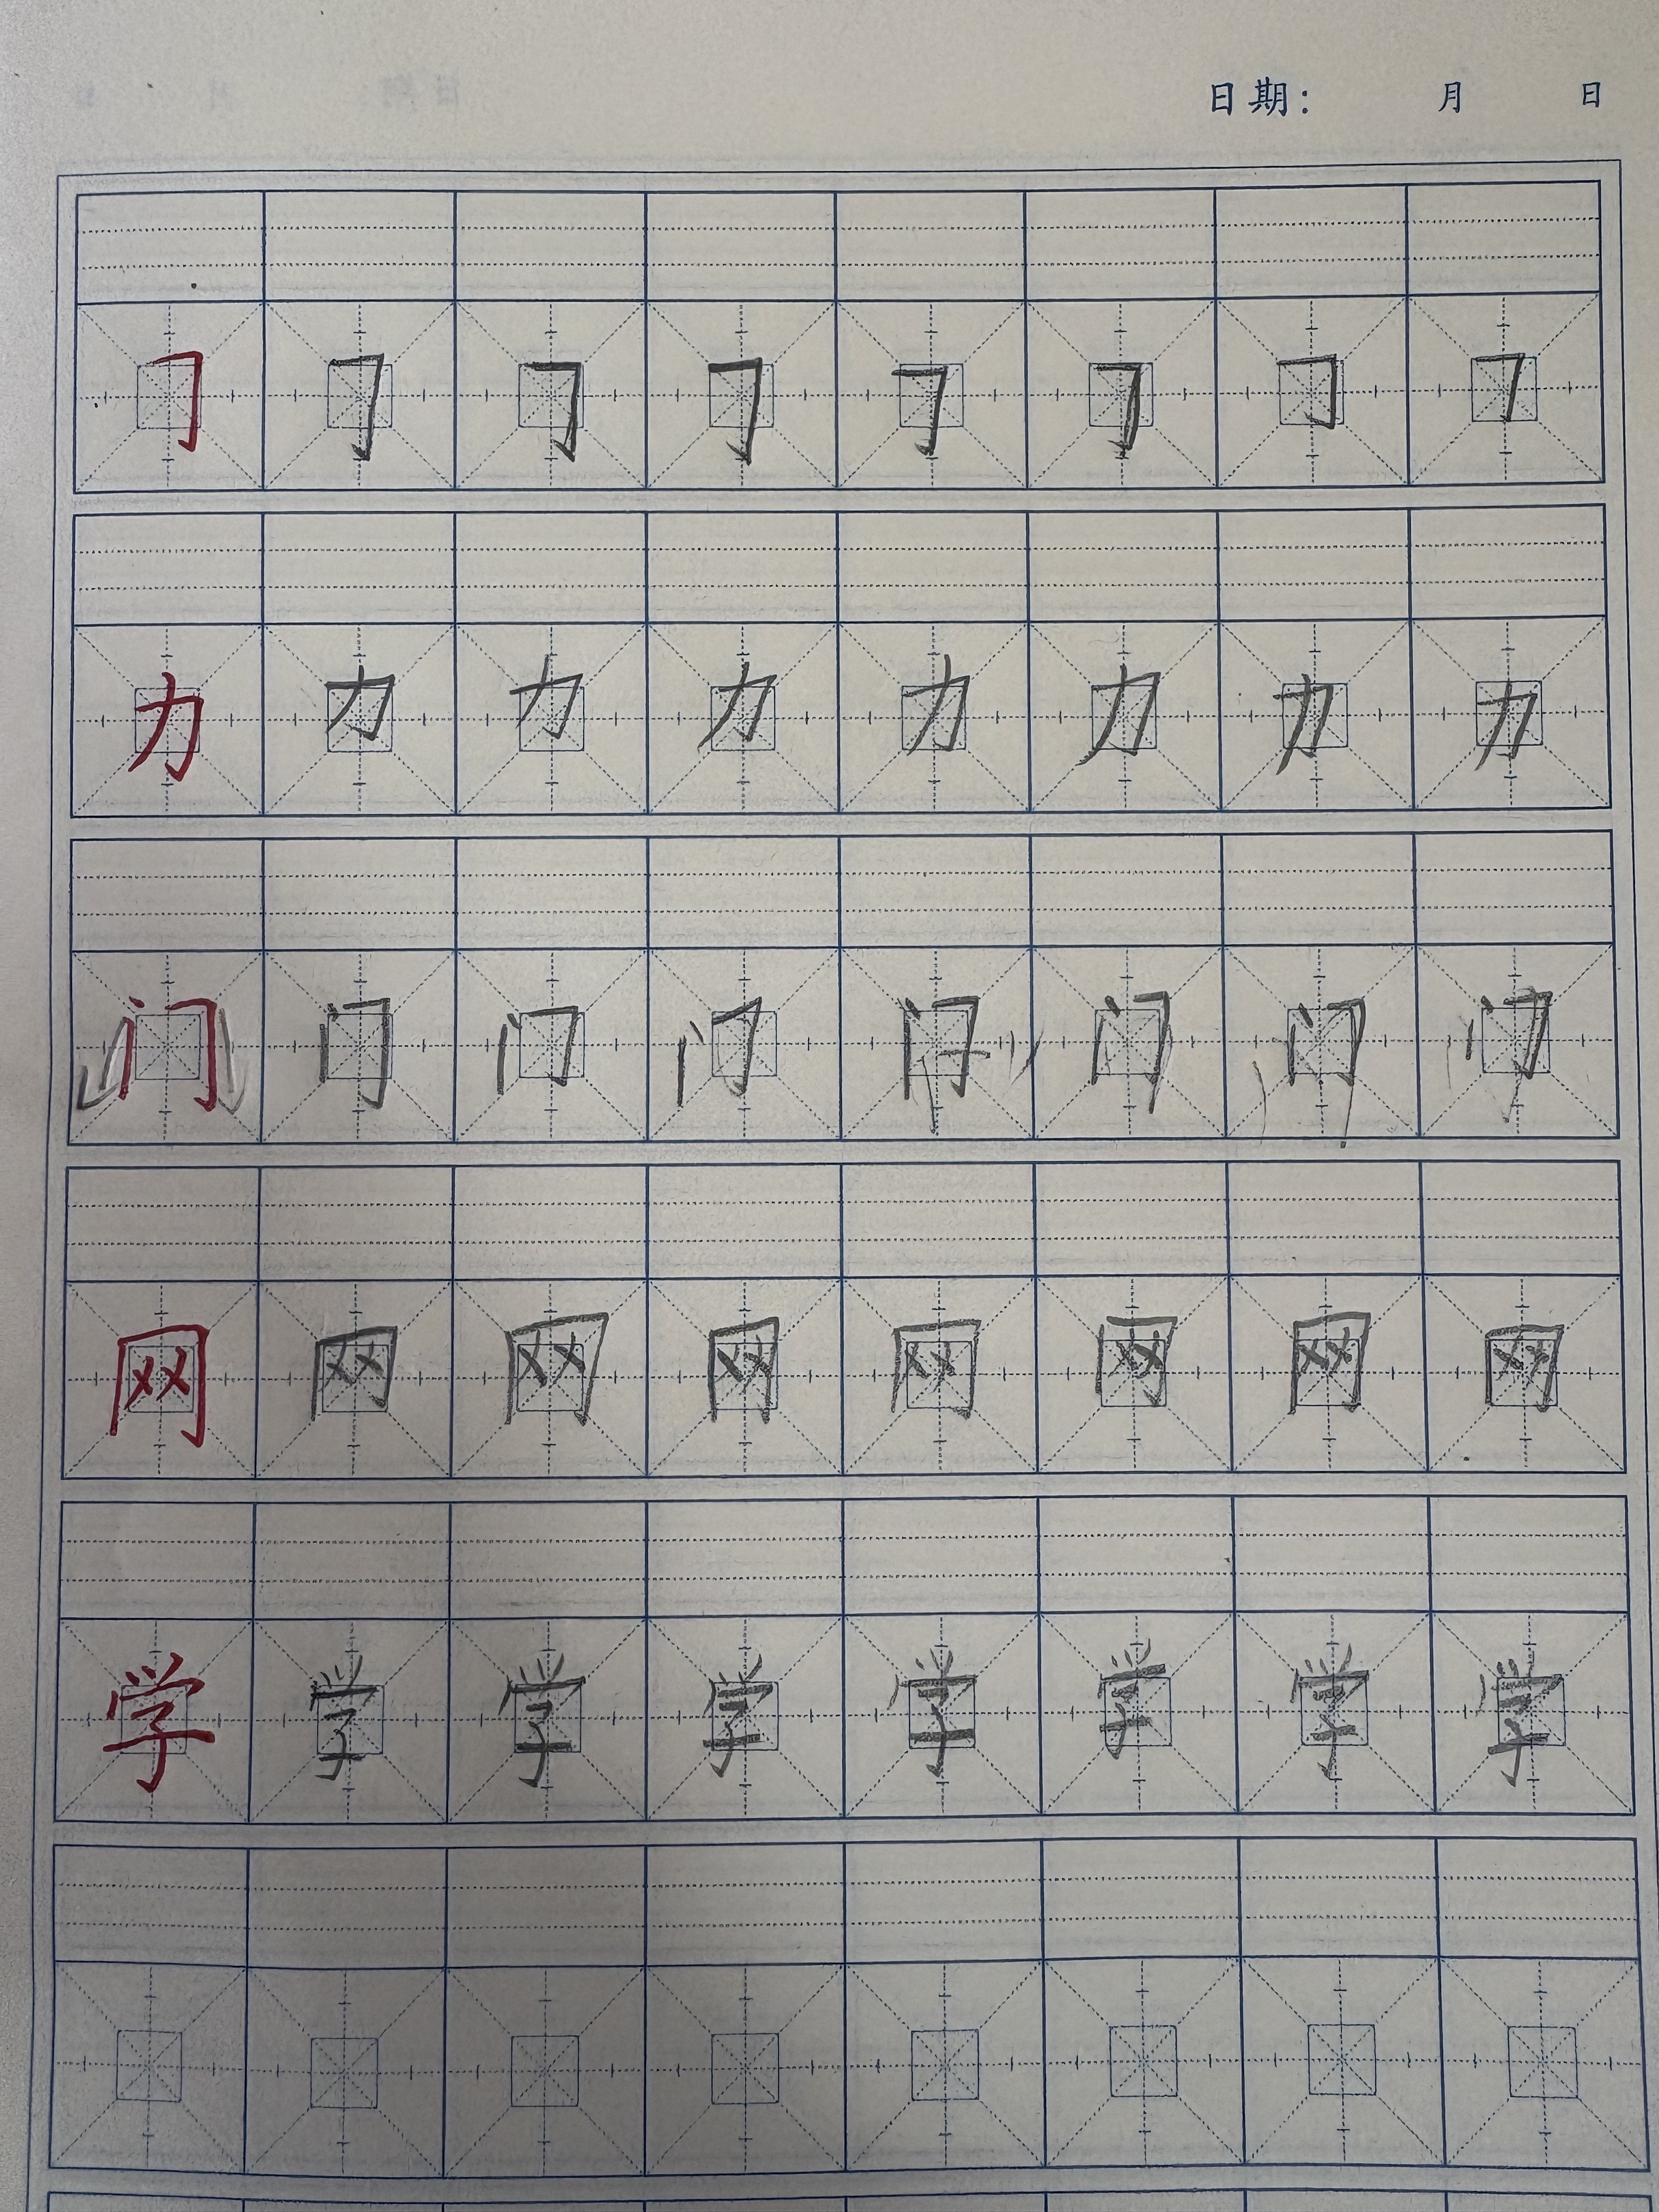 日期： 月 日
𠃌 𠃌 𠃌 𠃌 𠃌 𠃌 𠃌 𠃌
力 力 力 力 力 力 力 力
门 门 门 门 门 门 门 门
网 网 网 网 网 网 网 网
学 学 学 学 学 学 学 学